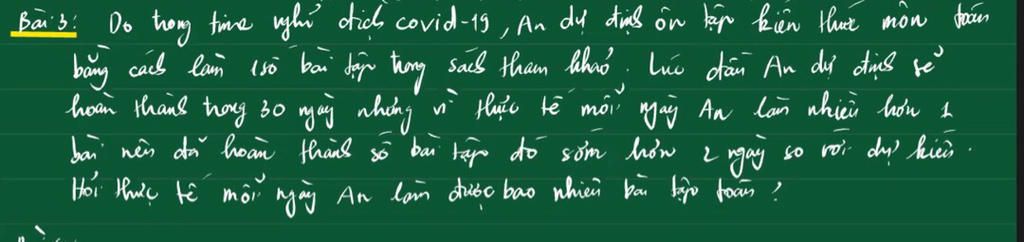 Bài 3: Do trong time nghỉ dịch covid-19, An dự định ôn tập kiến thức môn toán
bằng cách làm 1 số bài tập trong sách tham khảo. Lúc đầu An dự định sẽ
hoàn thành trong 30 ngày nhưng vì thực tế mỗi ngày An làm nhiều hơn 1
bài nên đã hoàn thành số bài tập đó sớm hơn 2 ngày so với dự kiến.
Hỏi thực tế mỗi ngày An làm được bao nhiêu bài tập toán?